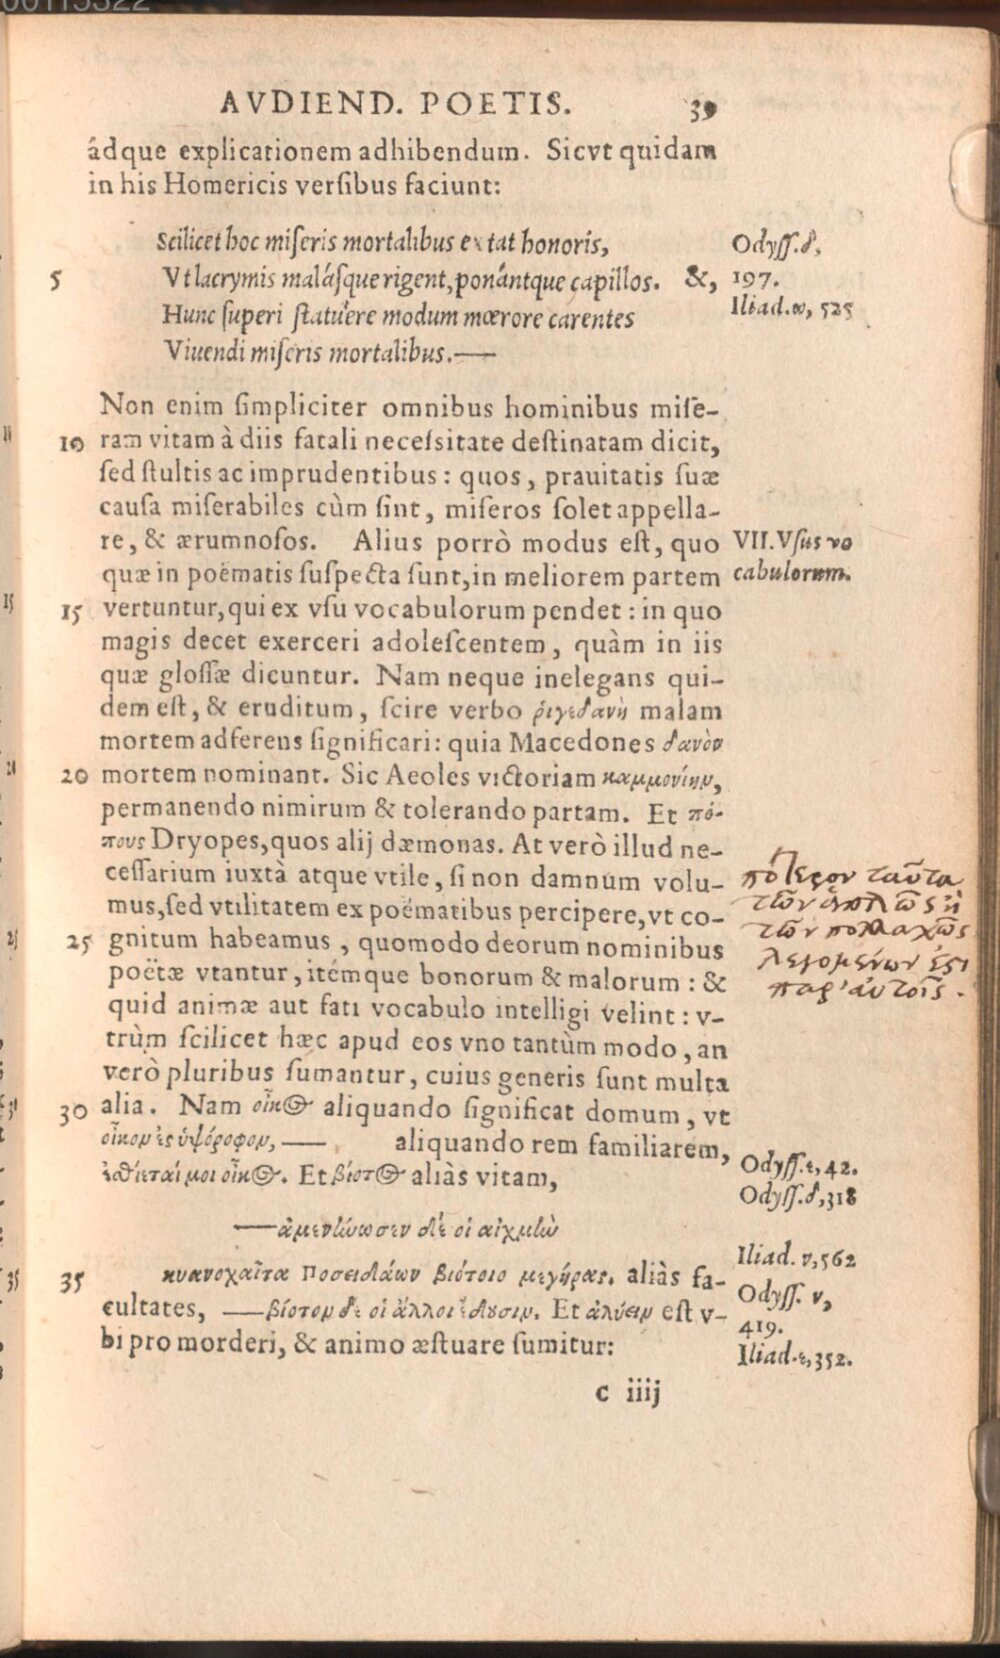 00115322
AVDIEND. POETIS. 39
ádque explicationem adhibendum. Sicvt quidam
in his Homericis versibus faciunt:
Scilicet hoc miseris mortalibus extat honoris, Odyss.δ,
5 Vt lacrymis malásque rigent, ponántque capillos. &, 197.
Hunc superi statuêre modum mœrore carentes Iliad.ω, 525
Viuendi miseris mortalibus.—
Non enim simpliciter omnibus hominibus mise-
10 ram vitam à diis fatali necessitate destinatam dicit,
sed stultis ac imprudentibus: quos, prauitatis suæ
causa miserabiles cùm sint, miseros solet appella-
re, & ærumnosos. Alius porrò modus est, quo VII. Vsus vo
quæ in poëmatis suspecta sunt, in meliorem partem cabulorum.
15 vertuntur, qui ex vsu vocabulorum pendet: in quo
magis decet exerceri adolescentem, quàm in iis
quæ glossæ dicuntur. Nam neque inelegans qui-
dem est, & eruditum, scire verbo ῥιγεδανὴ malam
mortem adferens significari: quia Macedones δανὸν
20 mortem nominant. Sic Aeoles victoriam καμμονίην,
permanendo nimirum & tolerando partam. Et πό-
πους Dryopes, quos alij dæmonas. At verò illud ne-
cessarium iuxtà atque vtile, si non damnum volu-
mus, sed vtilitatem ex poëmatibus percipere, vt co-
25 gnitum habeamus, quomodo deorum nominibus
poëtæ vtantur, itémque bonorum & malorum: &
quid animæ aut fati vocabulo intelligi velint: v-
trùm scilicet hæc apud eos vno tantùm modo, an
verò pluribus sumantur, cuius generis sunt multa
30 alia. Nam οἶκος aliquando significat domum, vt
οἶκον ἐς ὑψόροφον, — aliquando rem familiarem,
ἐσθίεταί μοι οἶκος. Et βίοτος aliàs vitam,
—ἀμενήνωσεν δέ οἱ αἰχμὴν
35 κυανοχαῖτα Ποσειδάων βιότοιο μεγήρας. aliàs fa-
cultates, —βίοτον δέ οἱ ἄλλοι ἔδουσιν. Et ἀλύειν est v-
bi pro morderi, & animo æstuare sumitur:
c iiij
πότερον ταῦτα
τῶν ἁπλῶς ἢ
τῶν πολλαχῶς
λεγομένων ἐστὶ
παρ' αὐτοῖς.
Odyss.ε, 42.
Odyss.δ, 318
Iliad. ν, 562
Odyss. ν,
419.
Iliad.ε, 352.